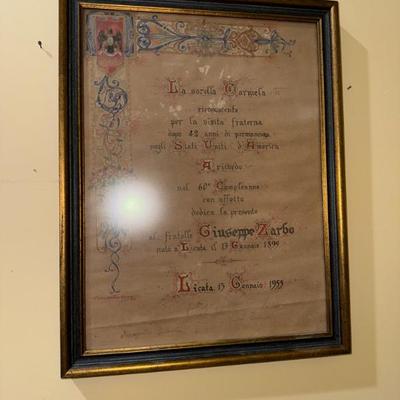 La sorella Carmela
riconoscente
per la visita fraterna
dopo 42 anni di permanenza
negli Stati Uniti d'America
A ricordo
nel 60° Compleanno
con affetto
dedica la presente
al fratello Giuseppe Zarbo
nato a Licata il 13 Gennaio 1899
Licata 13 Gennaio 1955